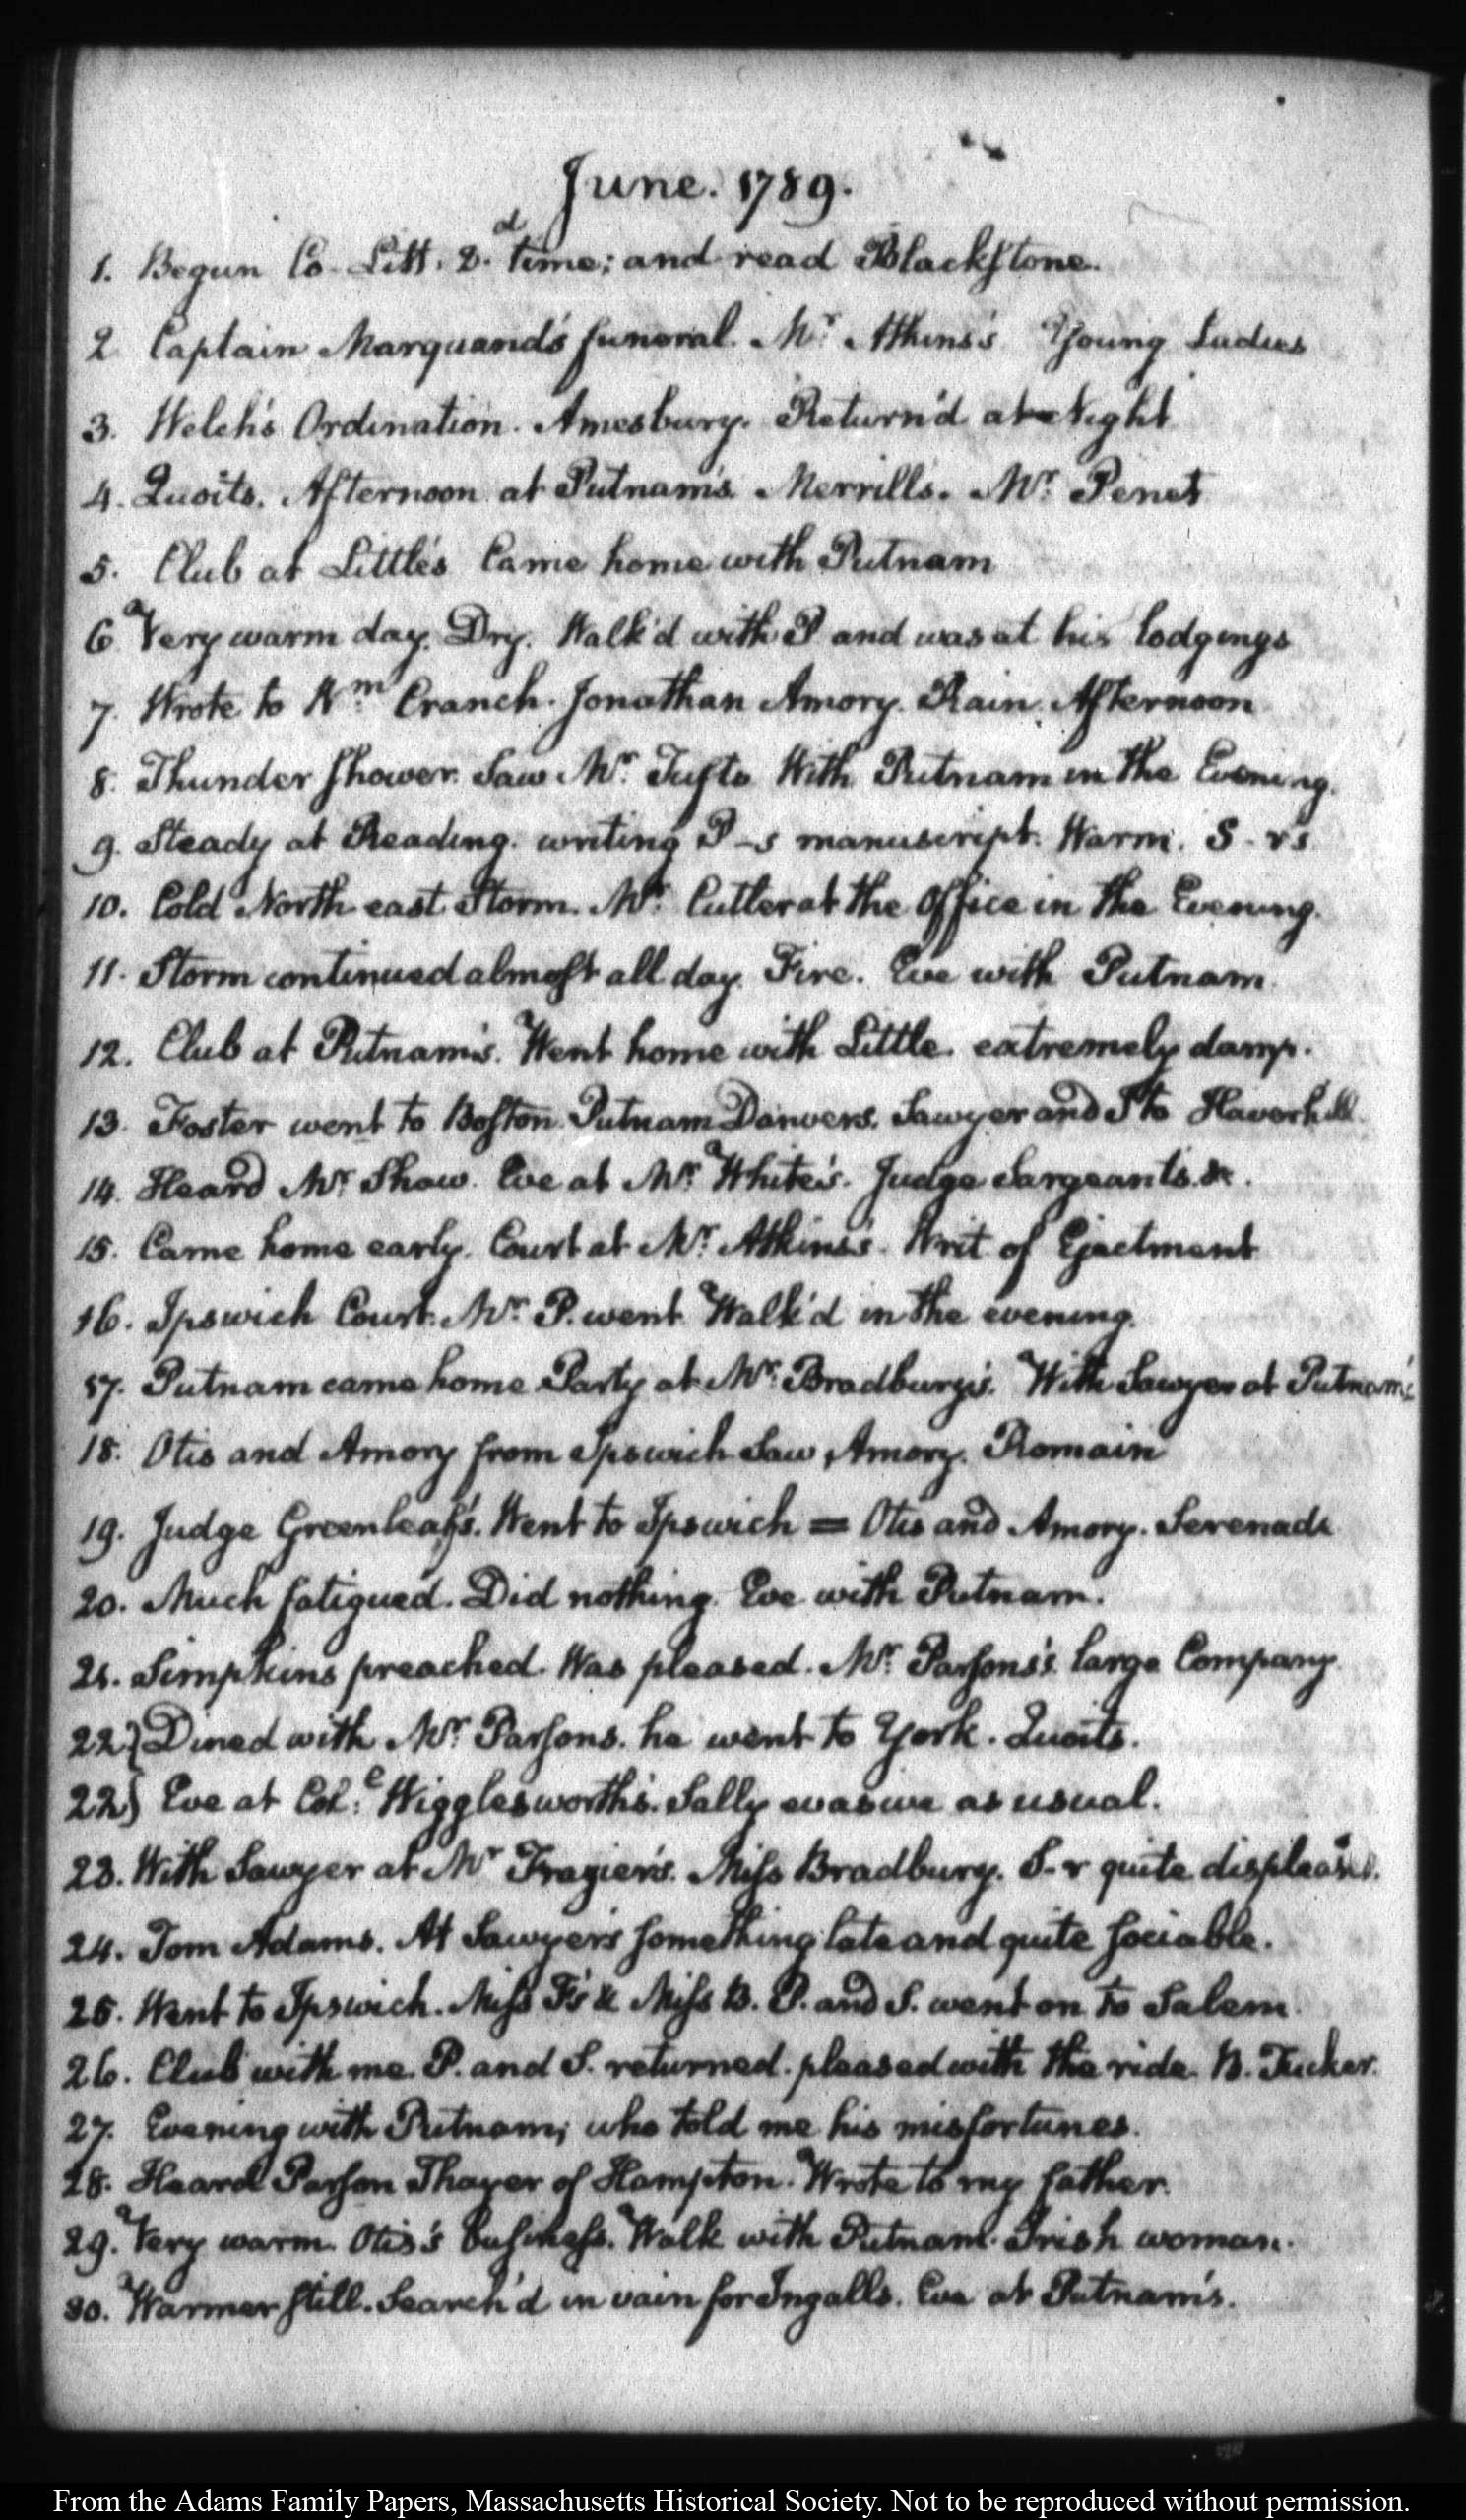 June. 1789.
1. Begun Co. Litt. 2.d time; and read Blackstone.
2 Captain Marquand's funeral. Mr. Atkins's Young Ladies
3. Welch's Ordination. Amesbury. Return'd at Night
4. Quoits. Afternoon at Putnam's. Merrills. Mr. Penet
5. Club at Little's Came home with Putnam
6 Very warm day. Dry. Walk'd with P and was at his lodgings
7. Wrote to Wm. Cranch. Jonathan Amory. Rain. Afternoon
8. Thunder shower. Saw Mr. Tufts With Putnam in the Evening.
9. Steady at Reading. writing P-s manuscript. Warm. S-r's
10. Cold North east Storm. Mr. Cutler at the Office in the Evening.
11. Storm continued almost all day. Fire. Eve with Putnam.
12. Club at Putnam's. Went home with Little. extremely damp.
13. Foster went to Boston. Putnam Danvers. Sawyer and I to Haverhill
14. Heard Mr. Shaw. Eve at Mr. White's. Judge Sargeant's. &c.
15. Came home early. Court at Mr. Atkins's. Writ of Ejectment
16. Ipswich Court. Mr. P. went. Walk'd in the evening.
17. Putnam came home Party at Mr. Bradbury's. With Sawyer at Putnam's
18. Otis and Amory from Ipswich Saw Amory. Romain
19. Judge Greenleaf's. Went to Ipswich = Otis and Amory. Serenade
20. Much fatigued. Did nothing. Eve with Putnam.
21. Simpkins preached. Was pleased. Mr. Parsons's large Company.
22} Dined with Mr. Parsons. he went to York. Quoits.
22} Eve at Col.e Wigglesworth's. Sally evasive as usual.
23. With Sawyer at Mr. Frazier's. Miss Bradbury. S-r quite displeas'd.
24. Tom Adams. At Sawyer's something late and quite sociable.
25. Went to Ipswich. Miss F's & Miss B. P. and S. went on to Salem.
26. Club with me. P. and S. returned. pleased with the ride. B. Tucker.
27. Evening with Putnam; who told me his misfortunes.
28. Heard Parson Thayer of Hampton. Wrote to my father.
29. Very warm. Otis's business. Walk with Putnam. Irish woman.
30. Warmer still. Search'd in vain for Ingalls. Eve at Putnam's.
From the Adams Family Papers, Massachusetts Historical Society. Not to be reproduced without permission.